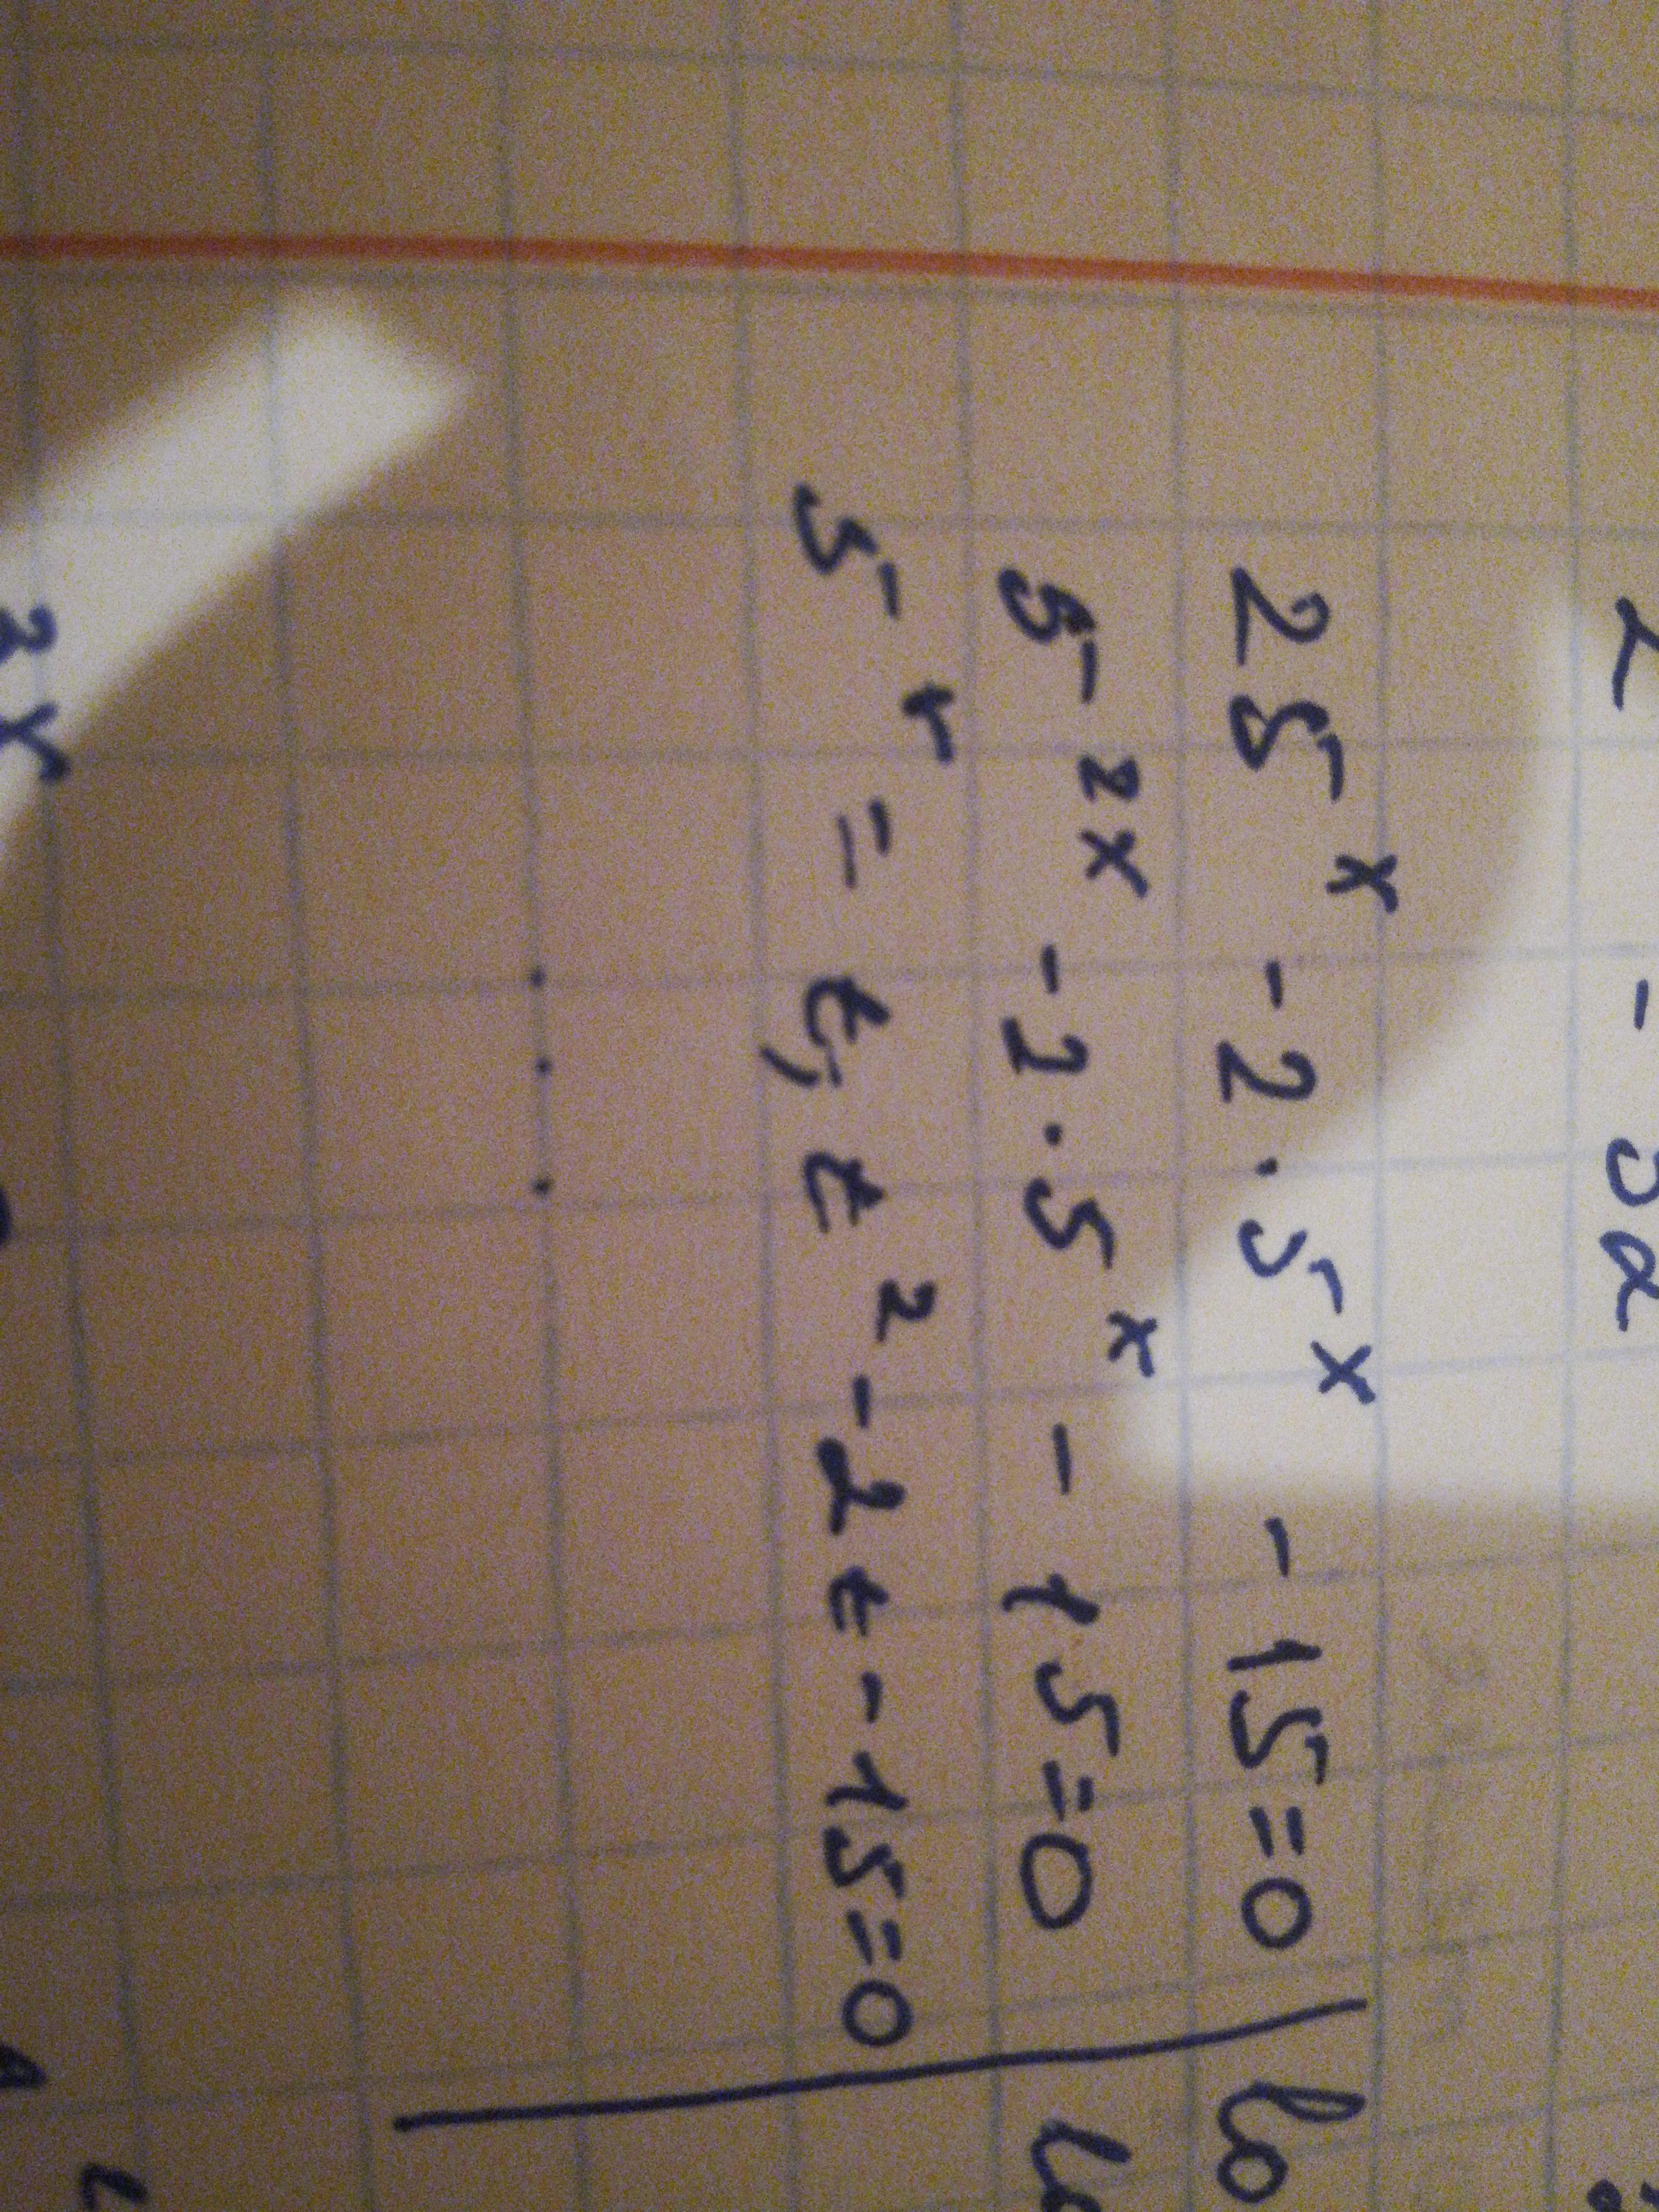 25^x - 2·5^x - 15=0
5^2x - 2·5^x - 15=0
5^x = t, t^2 - 2t - 15=0
...